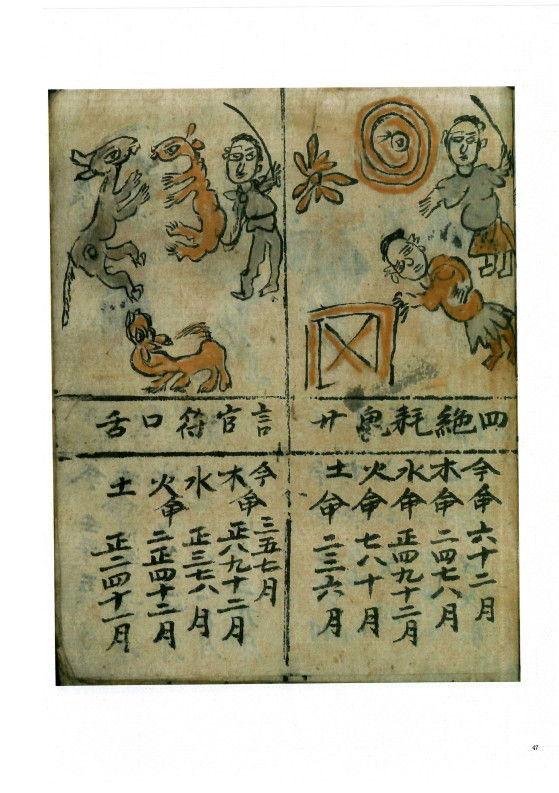 四絕耗鬼廿
今命六十二月
木命二四七八月
水命正四九十二月
火命七八十月
土命二三六月
言官符口舌
今命三五七月
木命正八九十二月
水正三七八月
火命二正四十二月
土正二四十一月
47